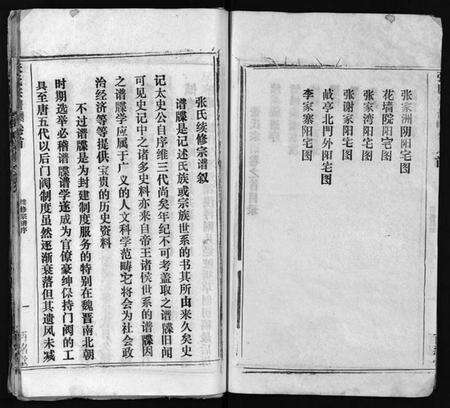 张家洲阴阳宅图
花墙院阳宅图
张家湾阳宅图
张谢家阳宅图
敲亭北門外阳宅图
李家寨阳宅图
张氏续修宗谱叙
谱牒是记述氏族或宗族世系的书其所由来久矣史
记太史公自序维三代尚矣年纪不可考盖取之谱牒旧闻
可见史记中之诸多史料亦来自帝王诸侯世系的谱牒因
之谱牒学应属于广义的人文科学范畴它将会为社会政
治经济等等提供宝贵的历史资料
不过谱牒是为封建制度服务的特别在魏晋南北朝
时期选举必稽谱牒谱学遂成为官僚豪绅保持门阀的工
具至唐五代以后门阀制度虽然逐渐衰落但其遗风未减
续修宗谱序
一